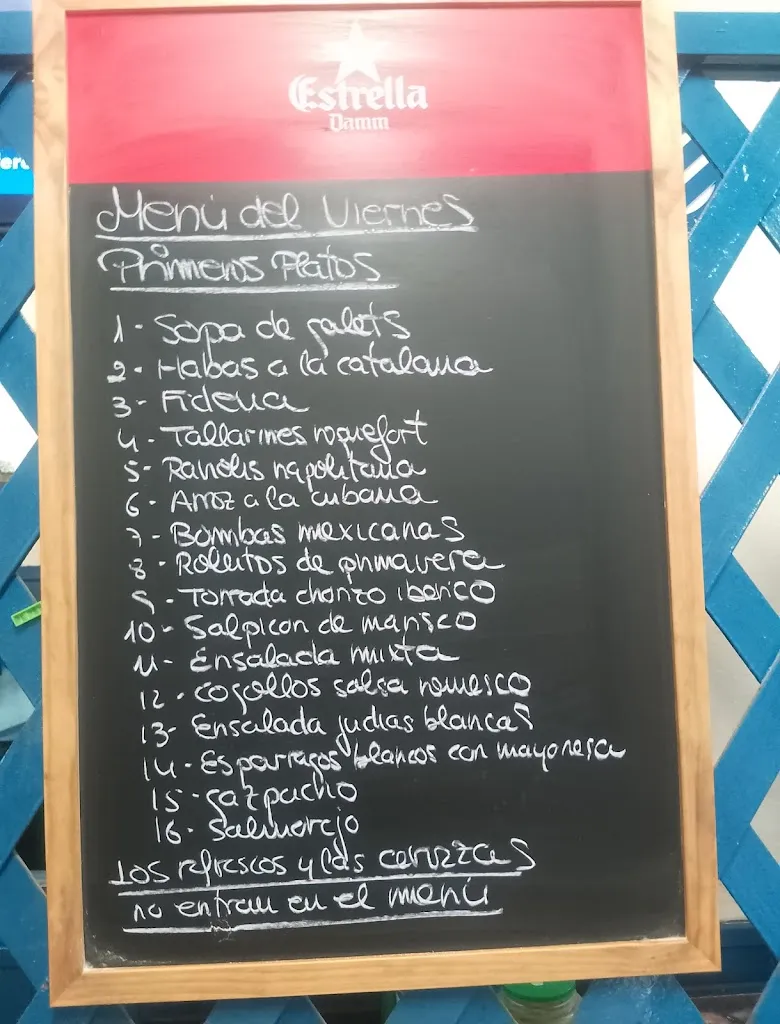 Estrella
Damm
Menú del Viernes
Primeros Platos
1- Sopa de galets
2- Habas a la catalana
3- Fideua
4- Tallarines roquefort
5- Raviolis napolitana
6- Arroz a la cubana
7- Bombas mexicanas
8- Rollitos de primavera
9- Torrada chorizo iberico
10- Salpicon de marisco
11- Ensalada mixta
12- Cogollos salsa romesco
13- Ensalada judias blancas
14- Esparragos blancos con mayonesa
15- Gazpacho
16- Salmorejo
Los refrescos y las cervezas
no entran en el menú